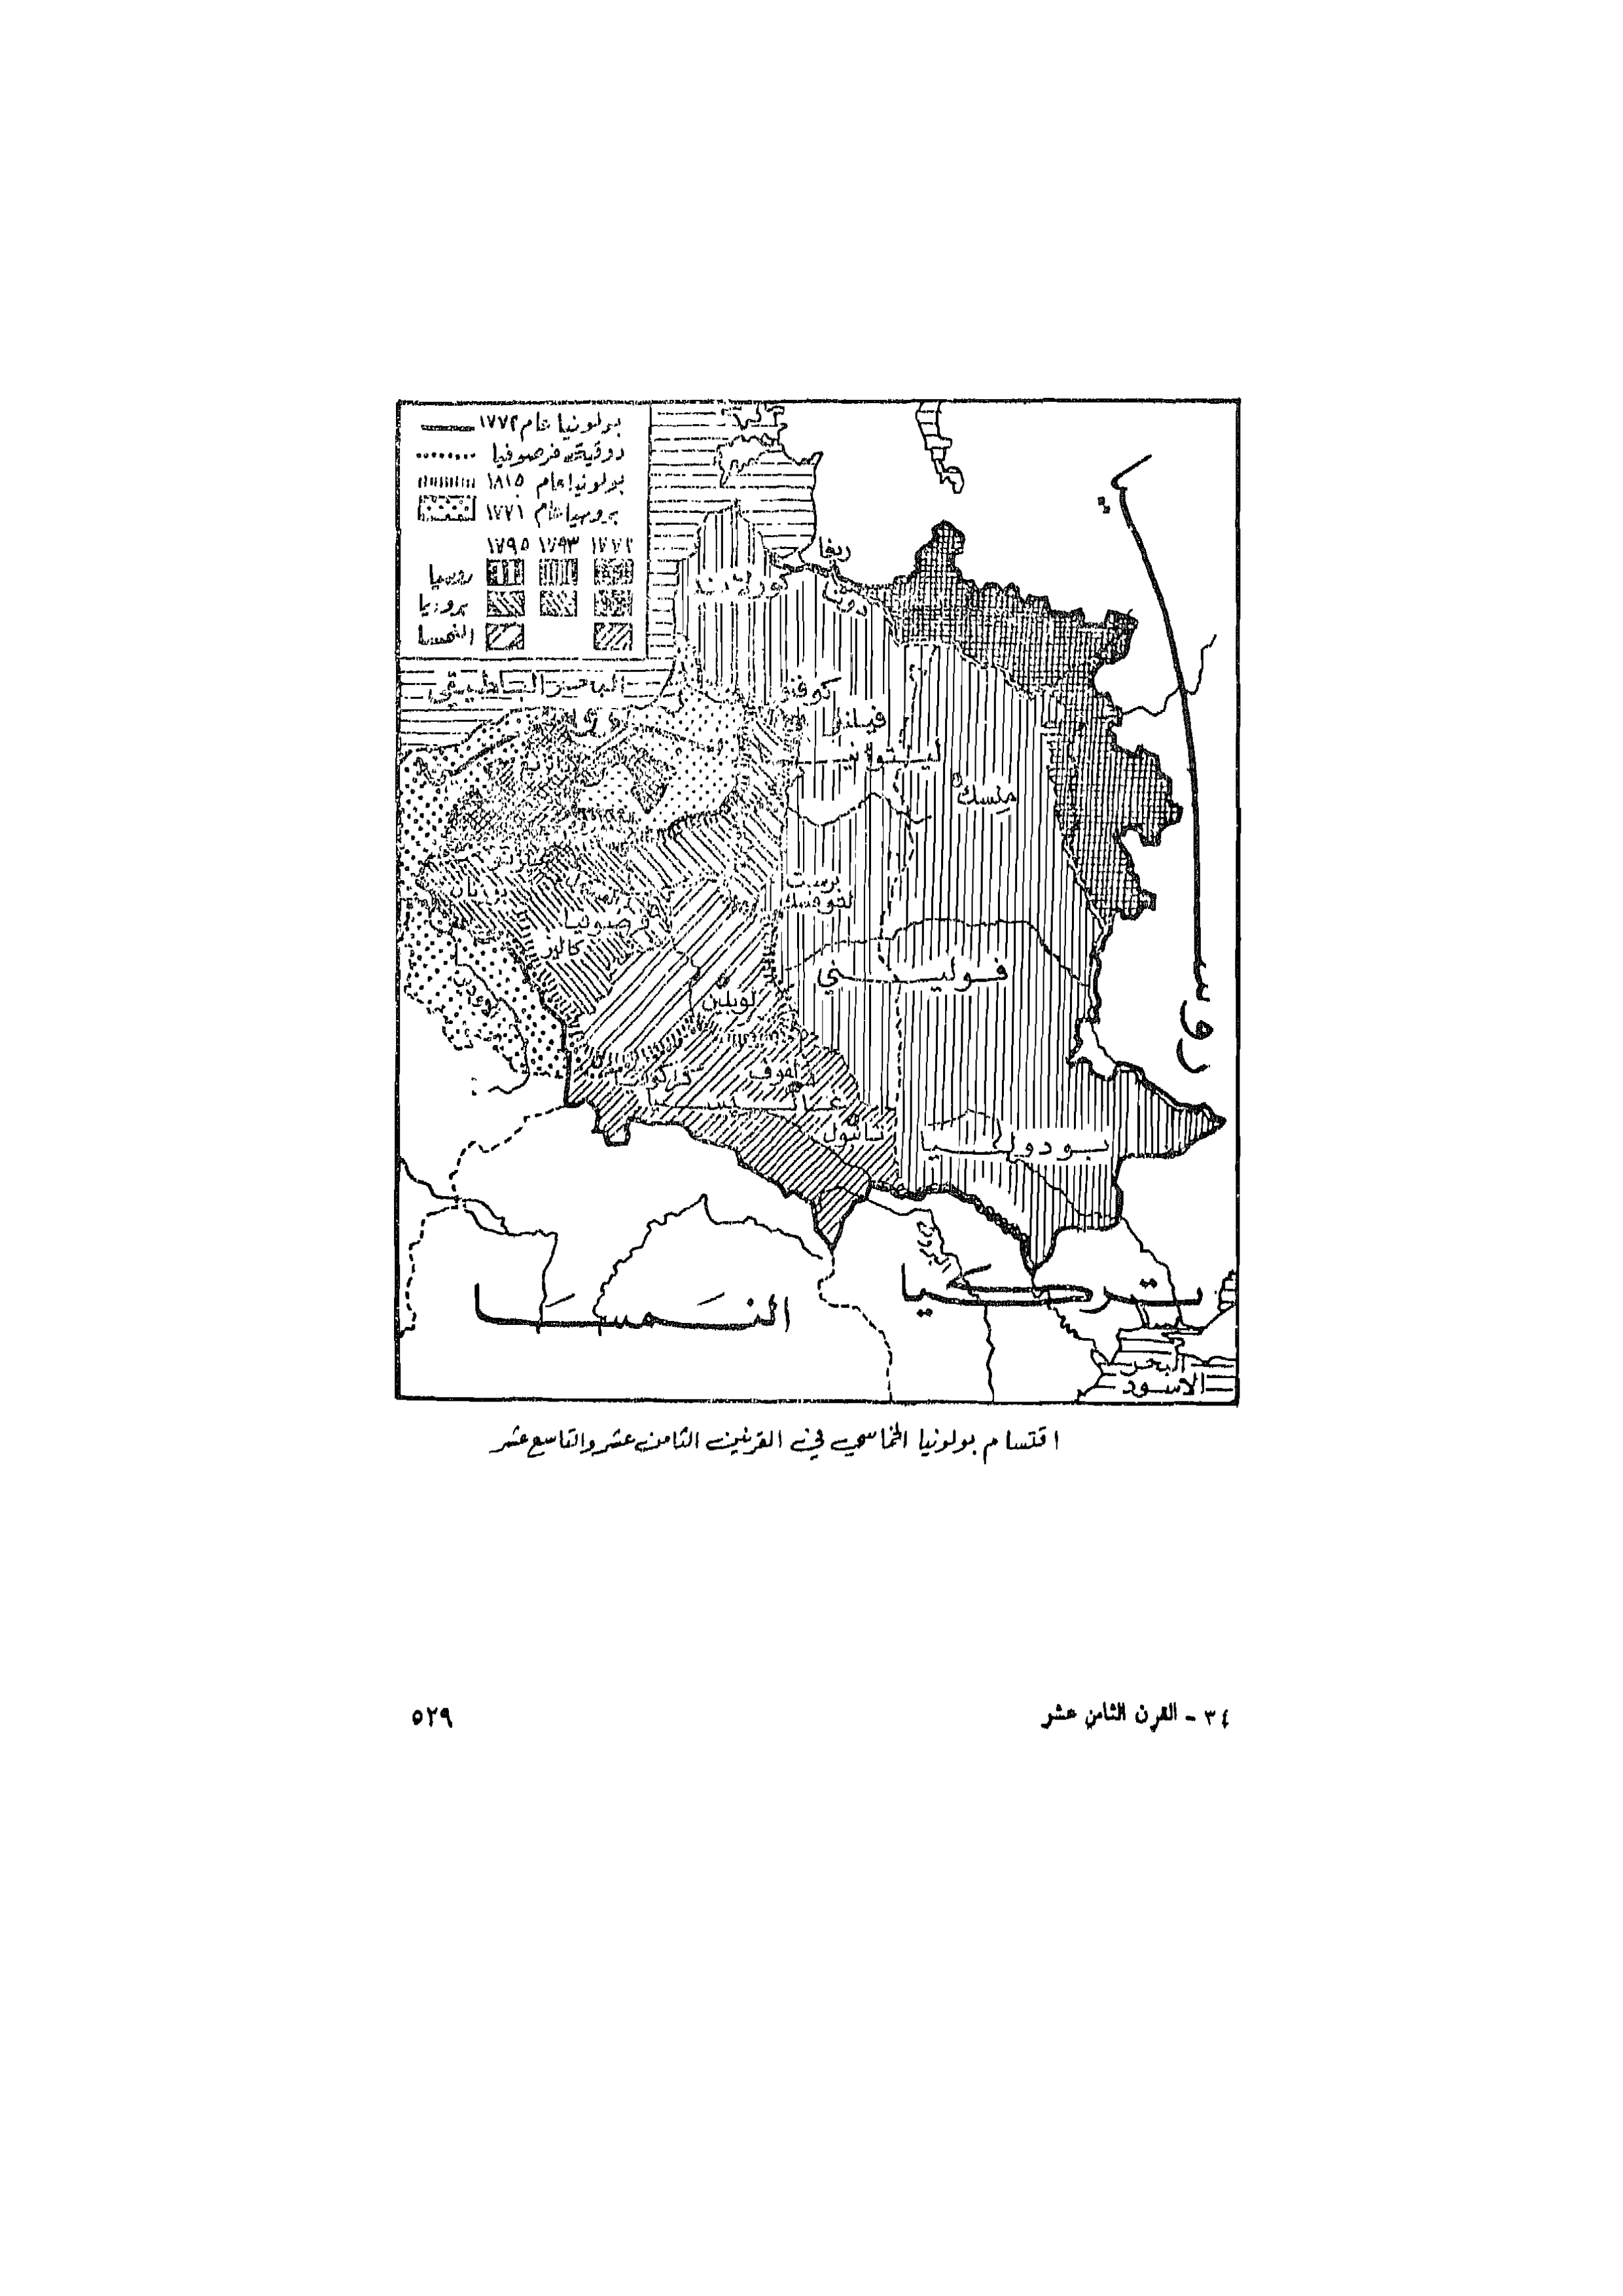 بولونيا عام ١٧٧٢
دوقية فرصوفيا
بولونيا عام ١٨١٥
بروسيا عام ١٧٧١
١٧٧٢ ١٧٩٣ ١٧٩٥
روسيا
بروسيا
النمسا
البحر البلطيقي
ريغا
كورلاند
دونا
كوفنو
فيلنا
ليتوانيا
منسك
برست
لتوفسك
فرصوفيا
كاليز
لوبلن
فوليني
غاليسيا
بودوليا
روسيا
النمسا
تركيا
البحر
الاسود
اقتسام بولونيا الخماسي في القرنين الثامن عشر والتاسع عشر
٣٤ - القرن الثامن عشر
٥٢٩